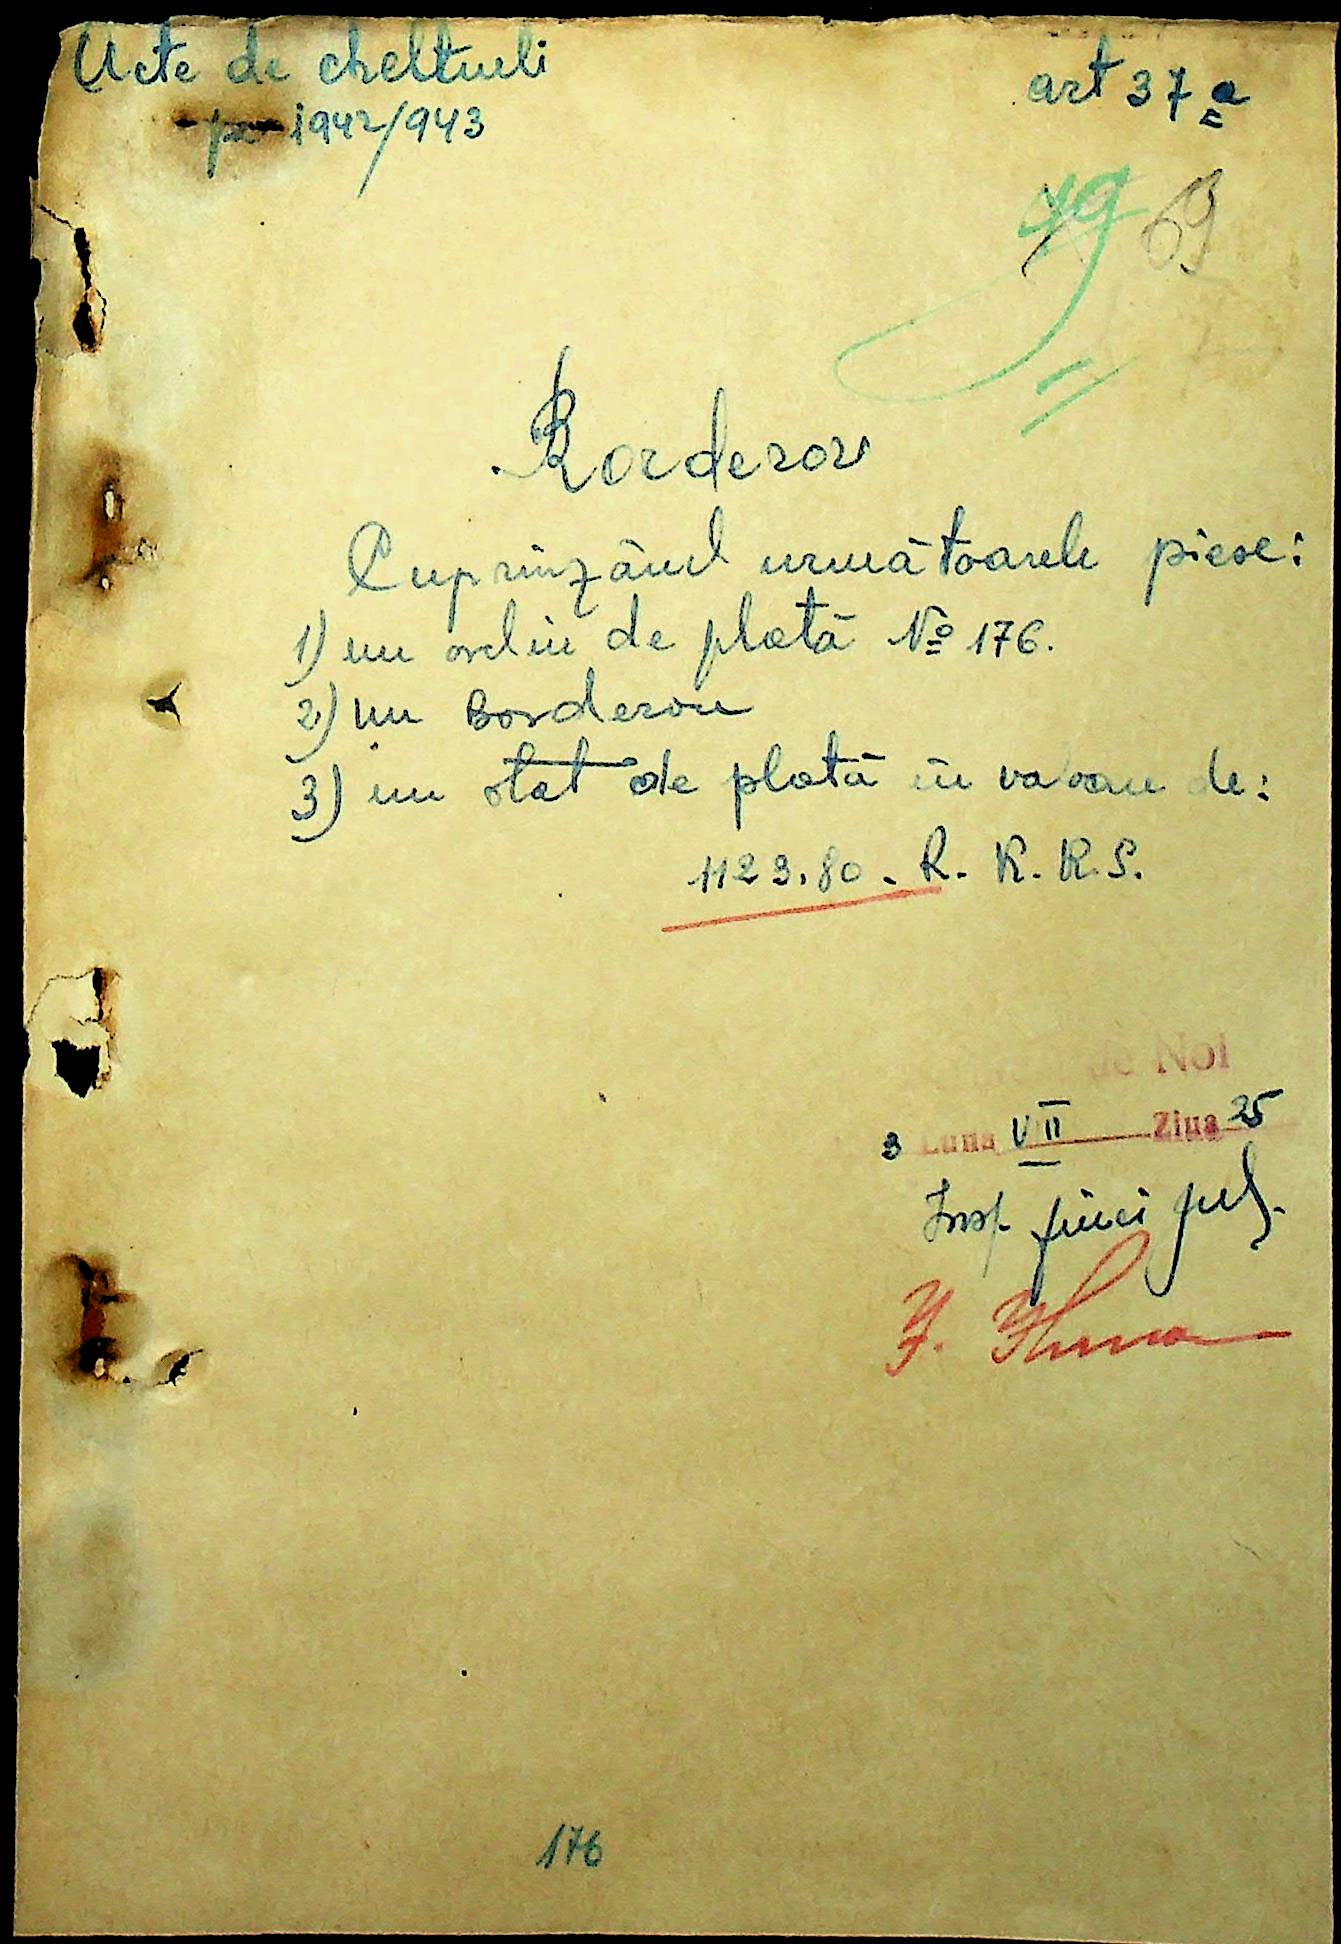 Acte de cheltueli
pe 1942/943
art 37 a
79 69
Borderou
Cuprinzând următoarele piese:
1) un ordin de plată № 176.
2) un Borderou
3) un stat de plată în valoare de:
1123.80. R. K. K. S.
de Noi
3 Luna VII Ziua 25
Insp.
176